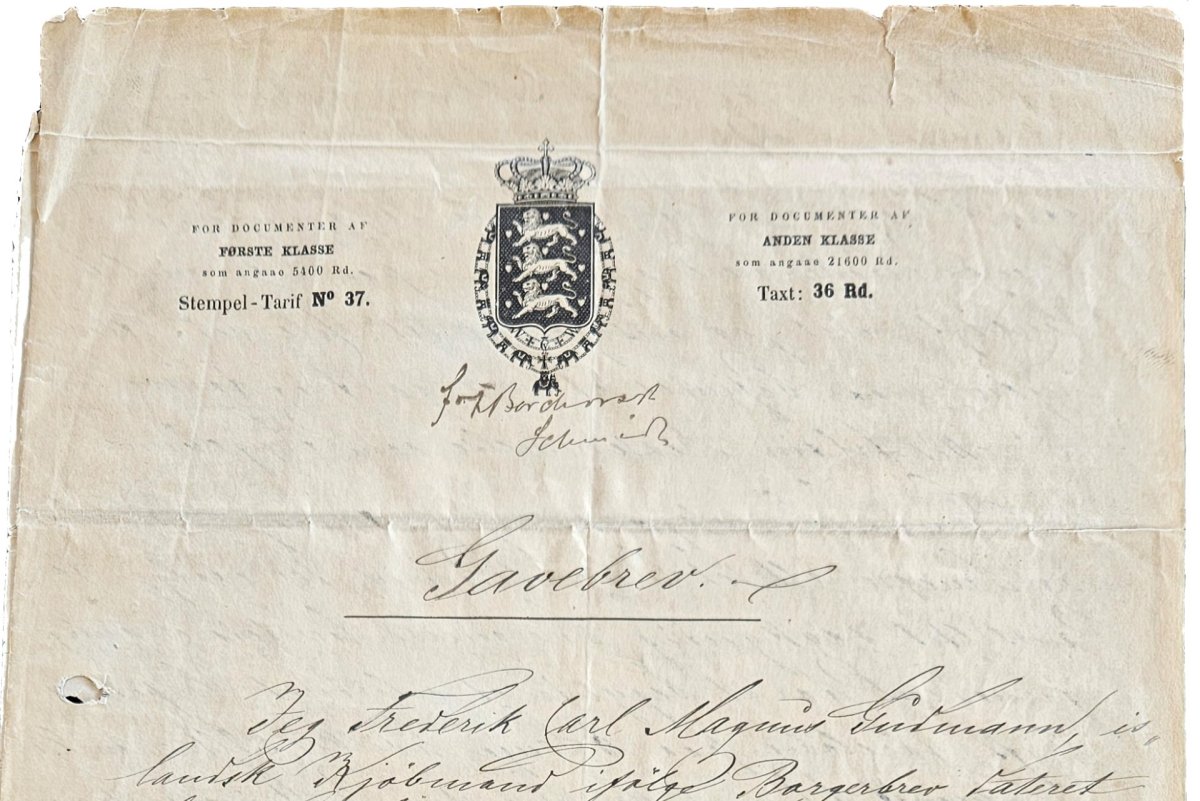 FOR DOCUMENTER AF
FØRSTE KLASSE
som angaae 5400 Rd.
Stempel-Tarif Nº 37.
FOR DOCUMENTER AF
ANDEN KLASSE
som angaae 21600 Rd.
Taxt: 36 Rd.
Schmidt
Gavebrev.
Jeg Frederik Carl Magnus Gudmann, is„
landsk Kjöbmand ifølge Borgerbrev dateret